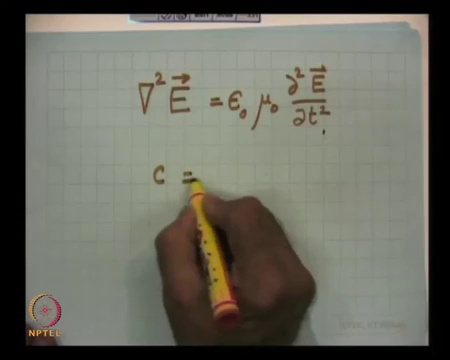 ∇² E⃗ = ϵ₀ μ₀ ∂² E⃗ / ∂t²
c =
NPTEL